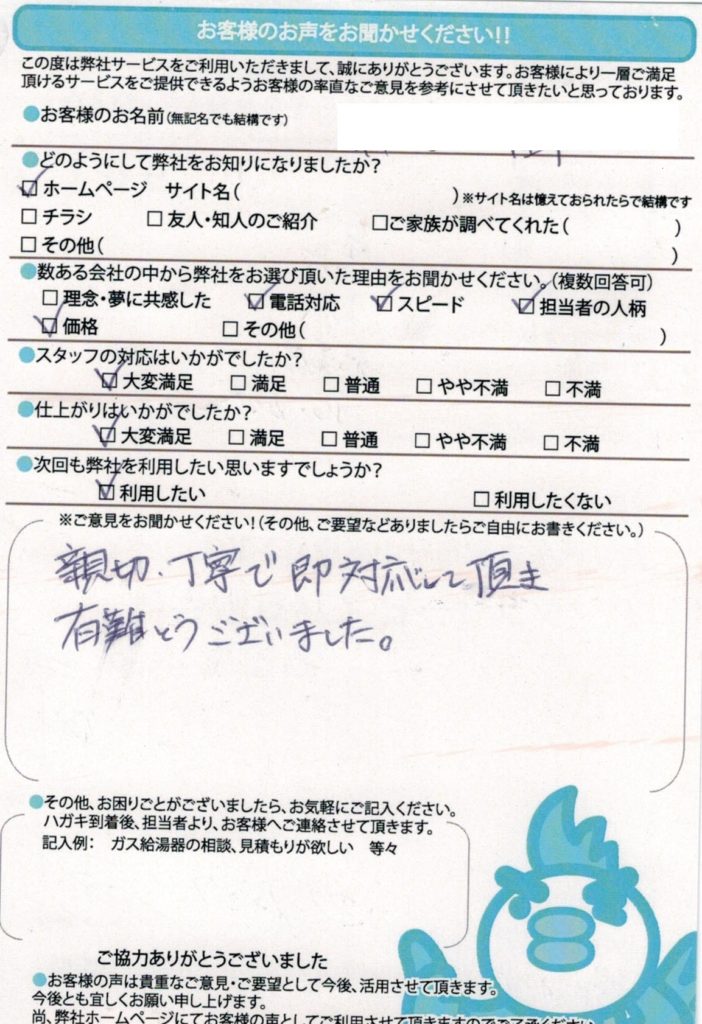 お客様のお声をお聞かせください!!
この度は弊社サービスをご利用いただきまして、誠にありがとうございます。お客様により一層ご満足
頂けるサービスをご提供できるようお客様の率直なご意見を参考にさせて頂きたいと思っております。
●お客様のお名前(無記名でも結構です)
●どのようにして弊社をお知りになりましたか?
☑ホームページ サイト名( )※サイト名は憶えておられたらで結構です
□チラシ □友人・知人のご紹介 □ご家族が調べてくれた( )
□その他( )
●数ある会社の中から弊社をお選び頂いた理由をお聞かせください。(複数回答可)
□理念・夢に共感した ☑電話対応 ☑スピード ☑担当者の人柄
☑価格 □その他( )
●スタッフの対応はいかがでしたか?
☑大変満足 □満足 □普通 □やや不満 □不満
●仕上がりはいかがでしたか?
☑大変満足 □満足 □普通 □やや不満 □不満
●次回も弊社を利用したい思いますでしょうか?
☑利用したい □利用したくない
※ご意見をお聞かせください!(その他、ご要望などありましたらご自由にお書きください。)
親切、丁寧で即対応して頂き
有難とうございました。
●その他、お困りごとがございましたら、お気軽にご記入ください。
ハガキ到着後、担当者より、お客様へご連絡させて頂きます。
記入例: ガス給湯器の相談、見積もりが欲しい 等々
ご協力ありがとうございました
●お客様の声は貴重なご意見・ご要望として今後、活用させて頂きます。
今後とも宜しくお願い申し上げます。
尚、弊社ホームページにてお客様の声としてご利用させて頂きますのでご了承ください